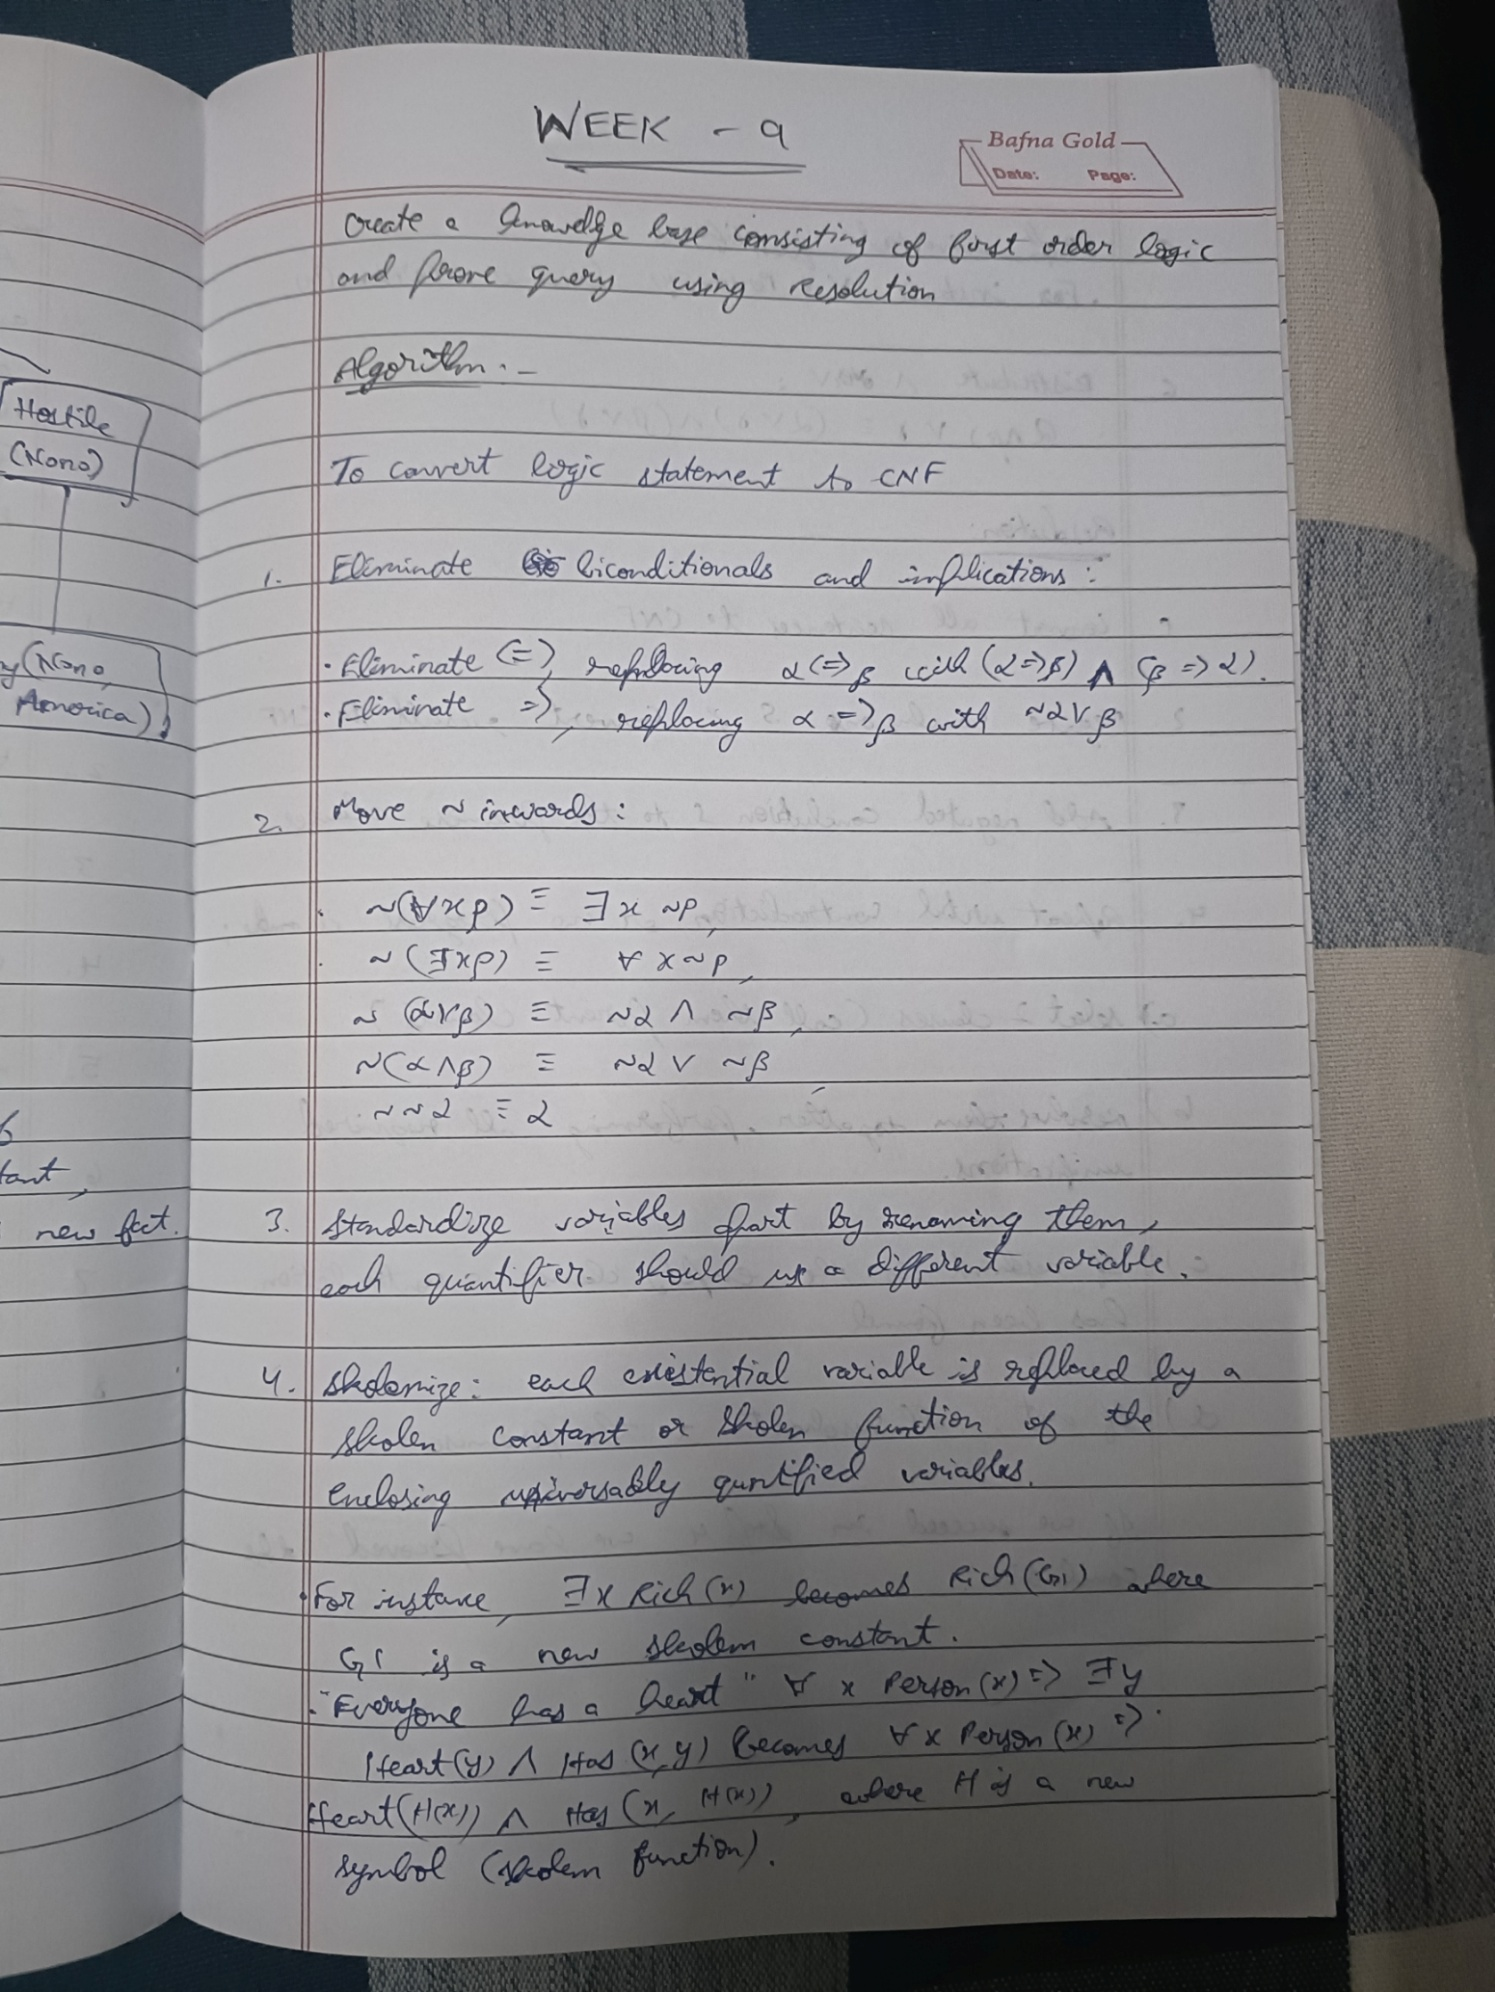 WEEK - 9
Bafna Gold
Date: Page:
Create a knowledge base consisting of first order logic
and prove query using resolution
Algorithm :-
To convert logic statement to CNF
1. Eliminate biconditionals and implications :
· Eliminate <=>, replacing α <=> β with (α => β) ∧ (β => α).
· Eliminate =>, replacing α => β with ~α ∨ β
2. Move ~ inwards :
· ~(∀x p) ≡ ∃x ~p,
· ~(∃x p) ≡ ∀x ~p,
~(α ∨ β) ≡ ~α ∧ ~β,
~(α ∧ β) ≡ ~α ∨ ~β,
~~α ≡ α
3. Standardize variables apart by renaming them,
each quantifier should use a different variable.
4. Skolemize : each existential variable is replaced by a
skolem constant or skolem function of the
enclosing universably quntified variables.
· For instance, ∃x Rich(x) becomes Rich(G1) where
G1 is a new skolem constant.
· "Everyone has a heart" ∀ x Person(x) => ∃y
Heart(y) ∧ Has(x, y) becomes ∀x Person(x) =>
Heart(H(x)) ∧ Has(x, H(x)), where H is a new
symbol (skolem function).
Hostile
(Nono)
(Nono,
America)
new fact.